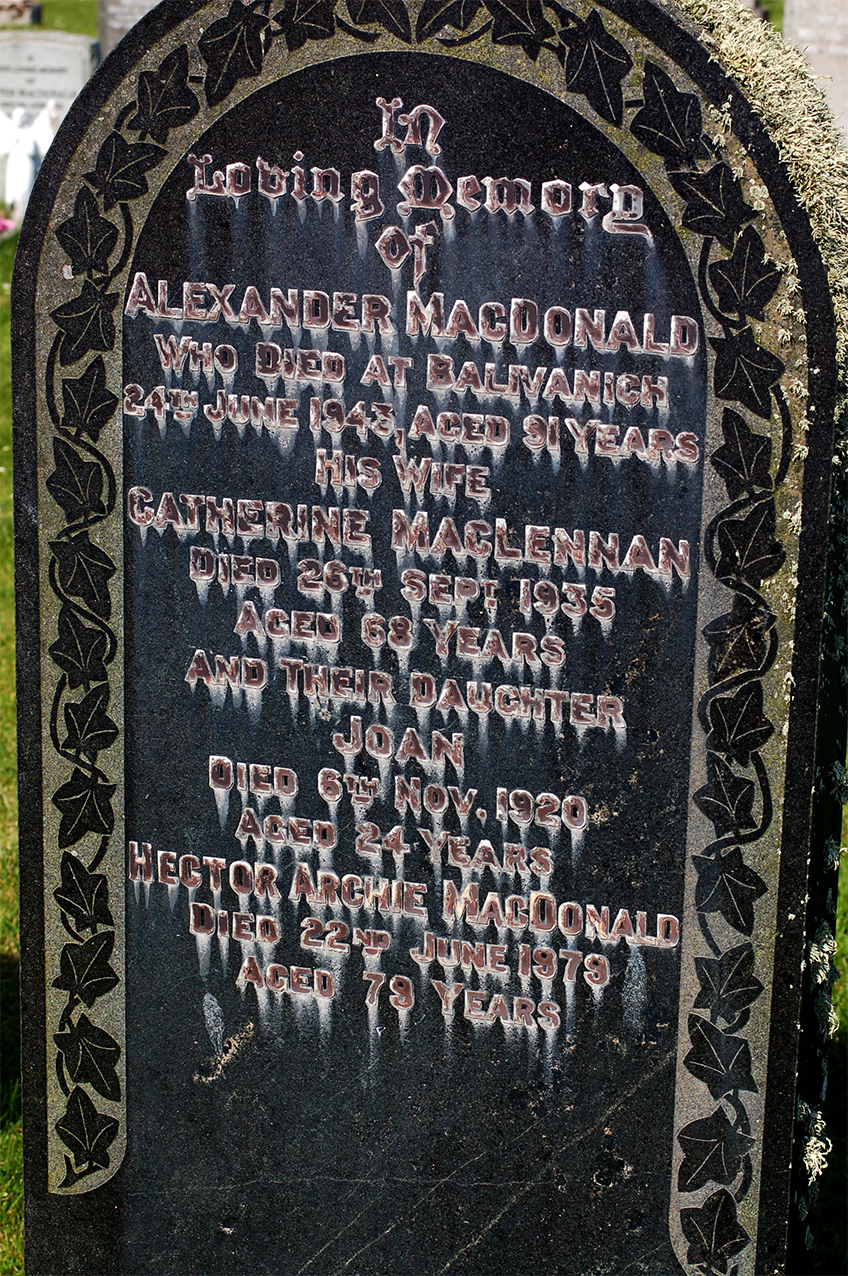 In
Loving Memory
of
ALEXANDER MACDONALD
WHO DIED AT BALIVANICH
24TH JUNE 1943, AGED 91 YEARS
HIS WIFE
CATHERINE MACLENNAN
DIED 26TH SEPT. 1935
AGED 68 YEARS
AND THEIR DAUGHTER
JOAN
DIED 6TH NOV. 1920
AGED 24 YEARS
HECTOR ARCHIE MACDONALD
DIED 22ND JUNE 1979
AGED 79 YEARS